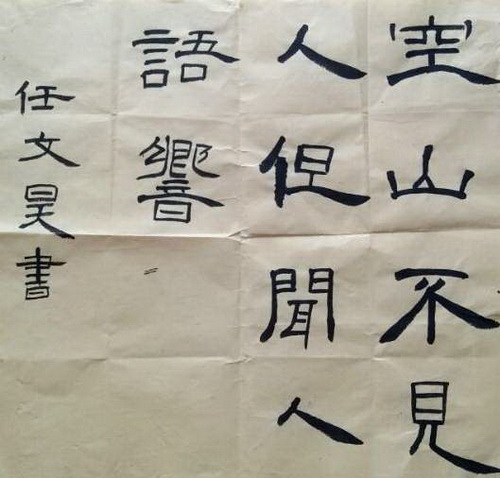 空山不見
人但聞人
語響
任文昊書